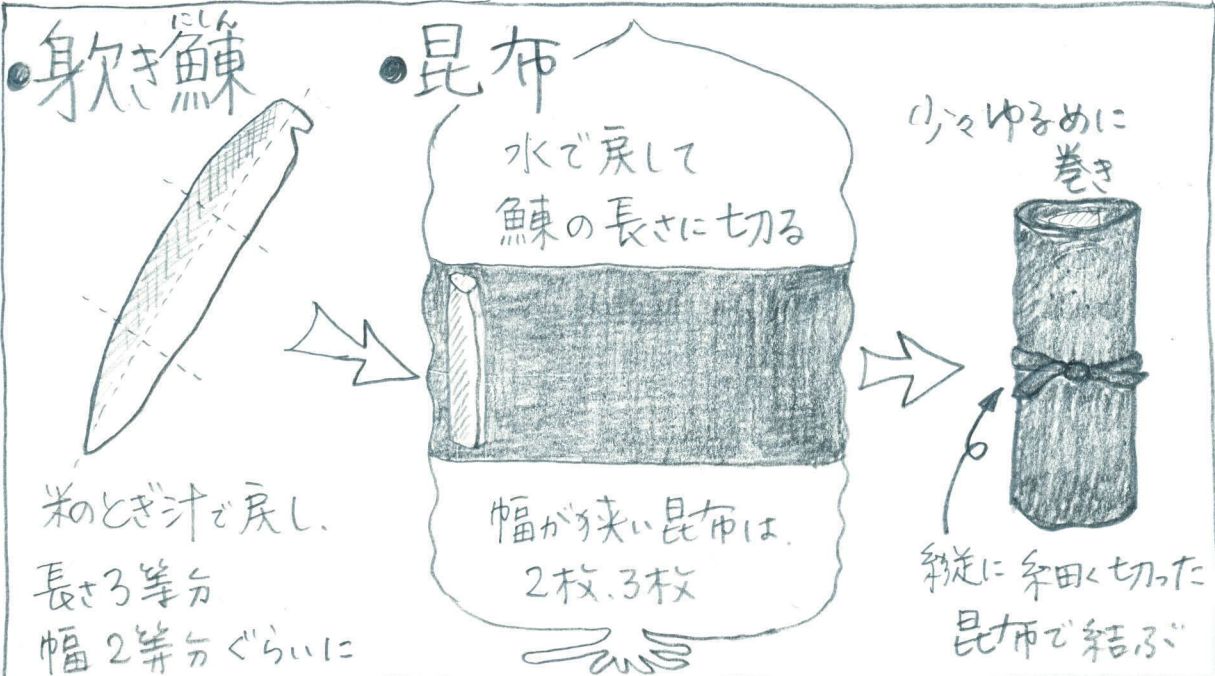 ●身欠き鰊
にしん
米のとぎ汁で戻し、
長さ3等分
幅2等分ぐらいに
●昆布
水で戻して
鰊の長さに切る
幅が狭い昆布は、
2枚、3枚
少々ゆるめに
巻き
縦に細く切った
昆布で結ぶ